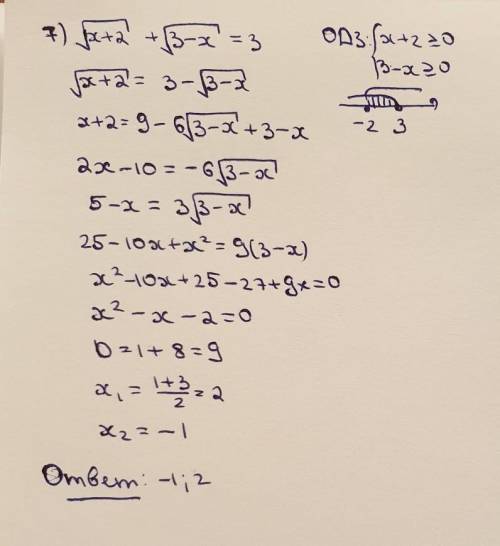 7) √x+2 + √3-x = 3
ОДЗ: {x+2 ≥ 0
3-x ≥ 0
-2 3
√x+2 = 3 - √3-x
x+2 = 9 - 6√3-x + 3-x
2x - 10 = -6√3-x
5-x = 3√3-x
25-10x+x² = 9(3-x)
x²-10x+25-27+9x=0
x² - x - 2 = 0
D = 1 + 8 = 9
x₁ = 1+3/2 = 2
x₂ = -1
Ответ: -1; 2